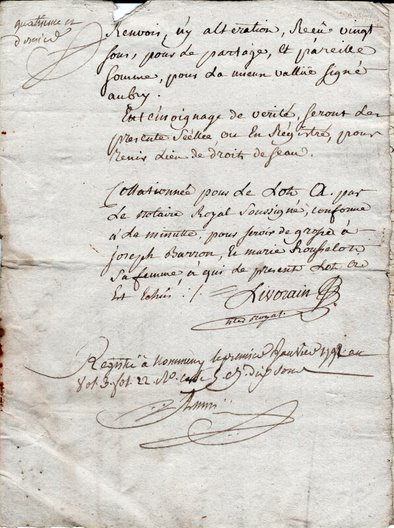 quatrieme et
dernier
Renvois, n'y alteration, Receu vingt
sous, pour de partage, et pareille
somme, pour la mieux vallüe signé
aubry.
En témoignage de verité, seront les
presente Séellée ou En Régistre, pour
tenir Lieu de droits de seau.
Collationnée pour le Lot A. par
le Notaire Royal Soussigné, conforme
à la minutte pour servir de grosse à
joseph Barron, et marie Rousselot
sa femme à qui de present Lot A
Est Echüe ./.
Livorain
notre Royal.
Registré à nommeny le premier Janvier 1792 au
Vol 3 fol 22 No. Case 5 et dix sous